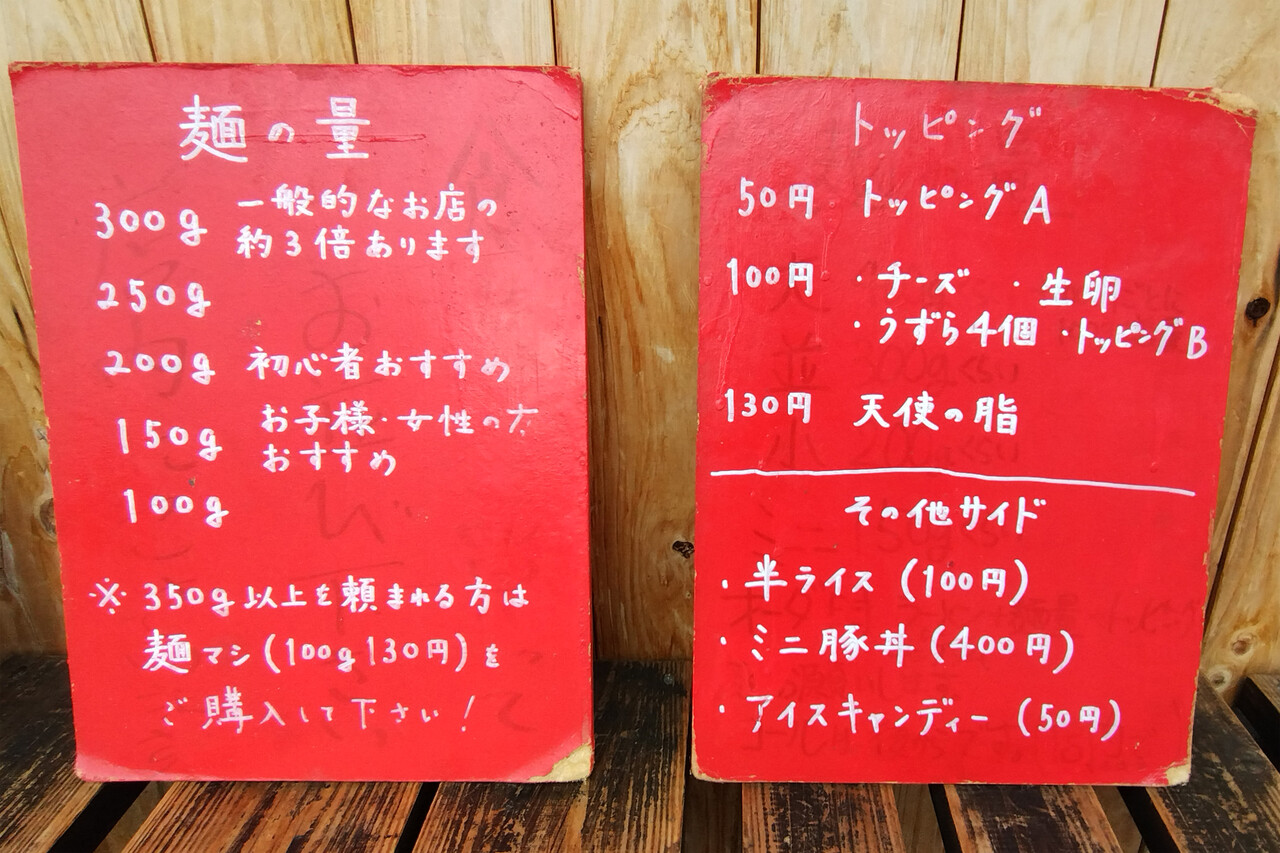 麺の量
300g 一般的なお店の
約3倍あります
250g
200g 初心者おすすめ
150g お子様・女性の方
おすすめ
100g
※ 350g以上を頼まれる方は
麺マシ(100g130円)を
ご購入して下さい!
トッピング
50円 トッピングA
100円 ・チーズ ・生卵
・うずら4個 ・トッピングB
130円 天使の脂
その他サイド
・半ライス (100円)
・ミニ豚丼 (400円)
・アイスキャンディー (50円)